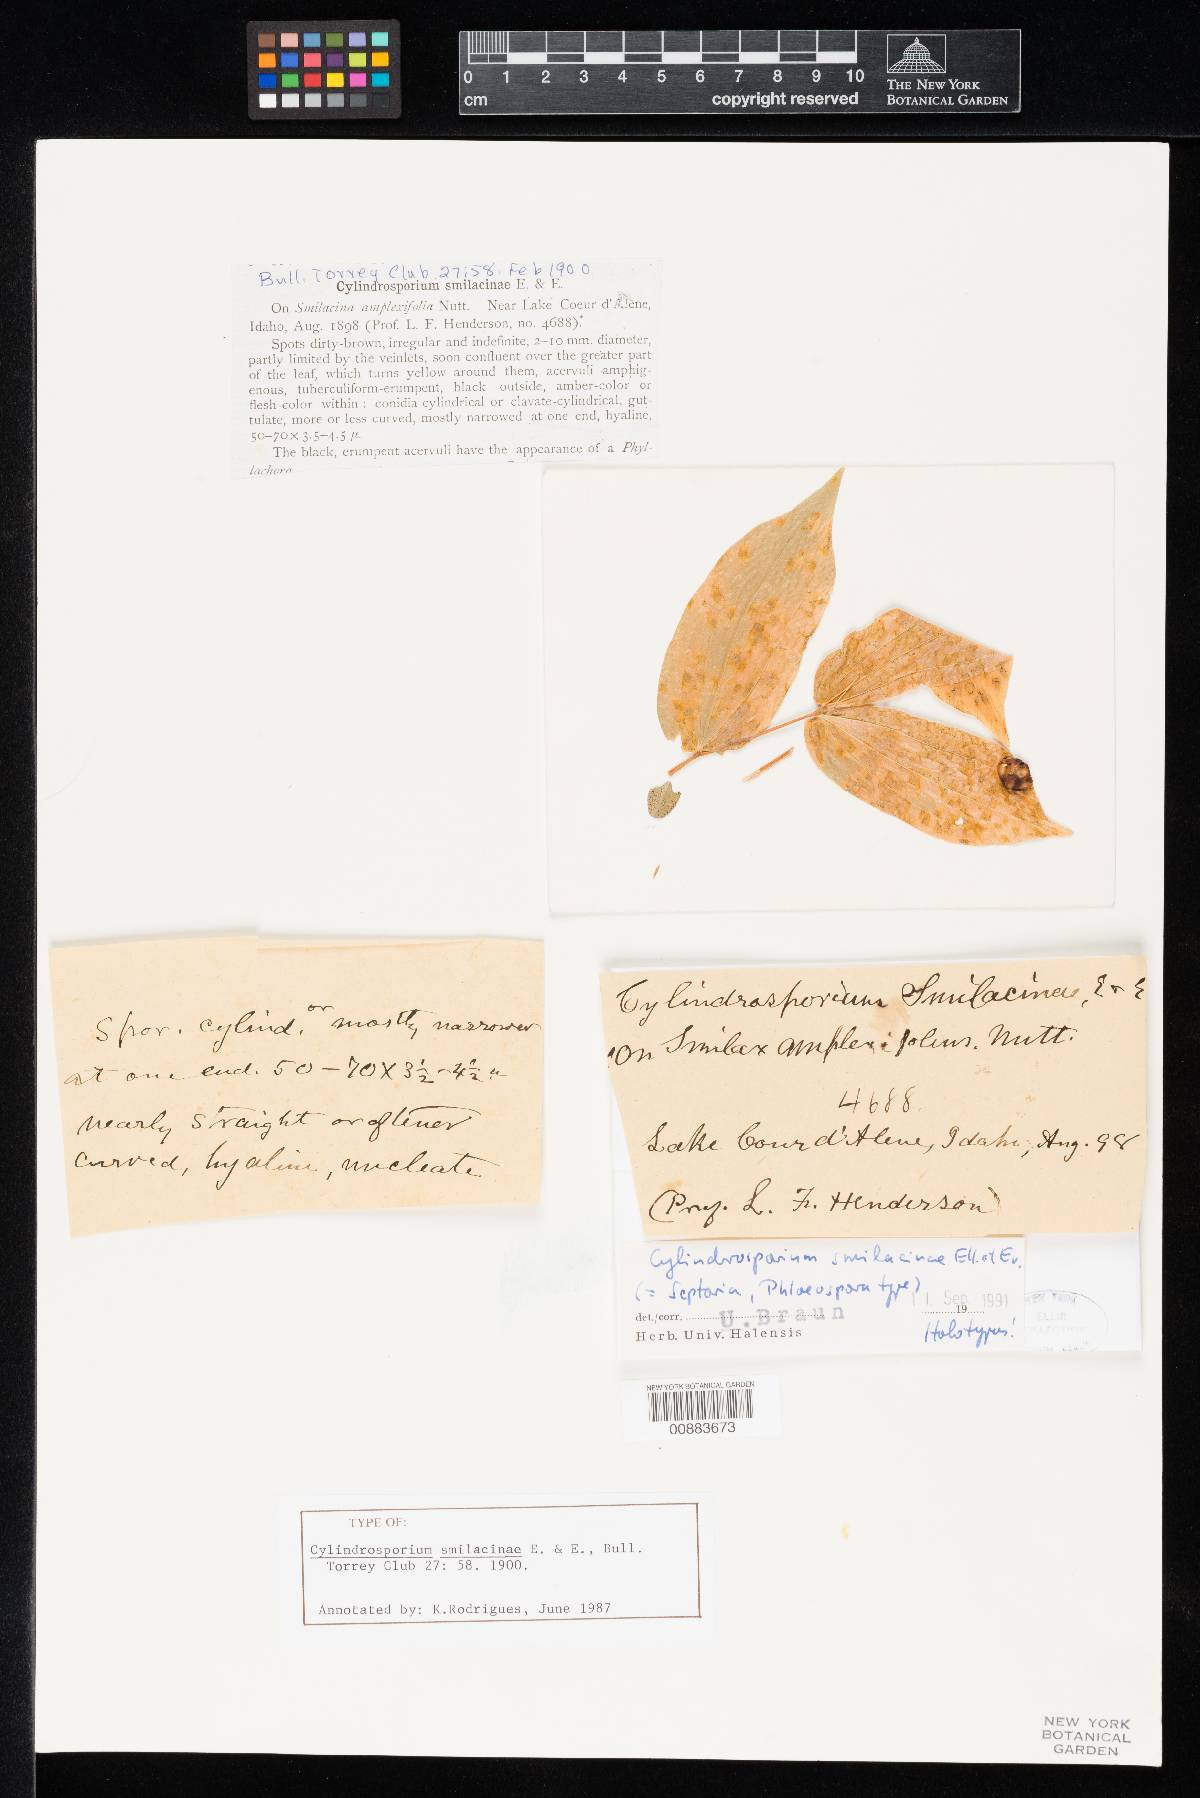 0 1 2 3 4 5 6 7 8 9 10
cm
copyright reserved
THE NEW YORK
BOTANICAL GARDEN
Bull. Torrey Club 27:58. Feb 1900
Cylindrosporium smilacinae E. & E.
On Smilacina amplexifolia Nutt. Near Lake Coeur d'Alene,
Idaho, Aug. 1898 (Prof. L. F. Henderson, no. 4688).
Spots dirty-brown, irregular and indefinite, 2–10 mm. diameter,
partly limited by the veinlets, soon confluent over the greater part
of the leaf, which turns yellow around them, acervuli amphig-
enous, tuberculiform-erumpent, black outside, amber-color or
flesh-color within: conidia cylindrical or clavate-cylindrical, gut-
tulate, more or less curved, mostly narrowed at one end, hyaline,
50–70 × 3.5–4.5 µ.
The black, erumpent acervuli have the appearance of a Phyl-
lachora
Spor. cylind. or mostly narrower
at one end. 50–70 X 3½–4½ µ
nearly straight or oftener
curved, hyaline, nucleate
Cylindrosporium Smilacinae, E & E
On Smilax amplexifolius. Nutt.
4688
Lake Coeur d'Alene, Idaho, Aug. 98
(Prof. L. F. Henderson)
Cylindrosporium smilacinae Ell. et Ev.
(= Septoria, Phloeospora type)
11 Sep. 1991
det./corr. U. Braun 19
Herb. Univ. Halensis
Holotypus!
NEW YORK BOTANICAL GARDEN
00883673
TYPE OF:
Cylindrosporium smilacinae E. & E., Bull.
Torrey Club 27: 58. 1900.
Annotated by: K.Rodrigues, June 1987
NEW YORK
BOTANICAL
GARDEN